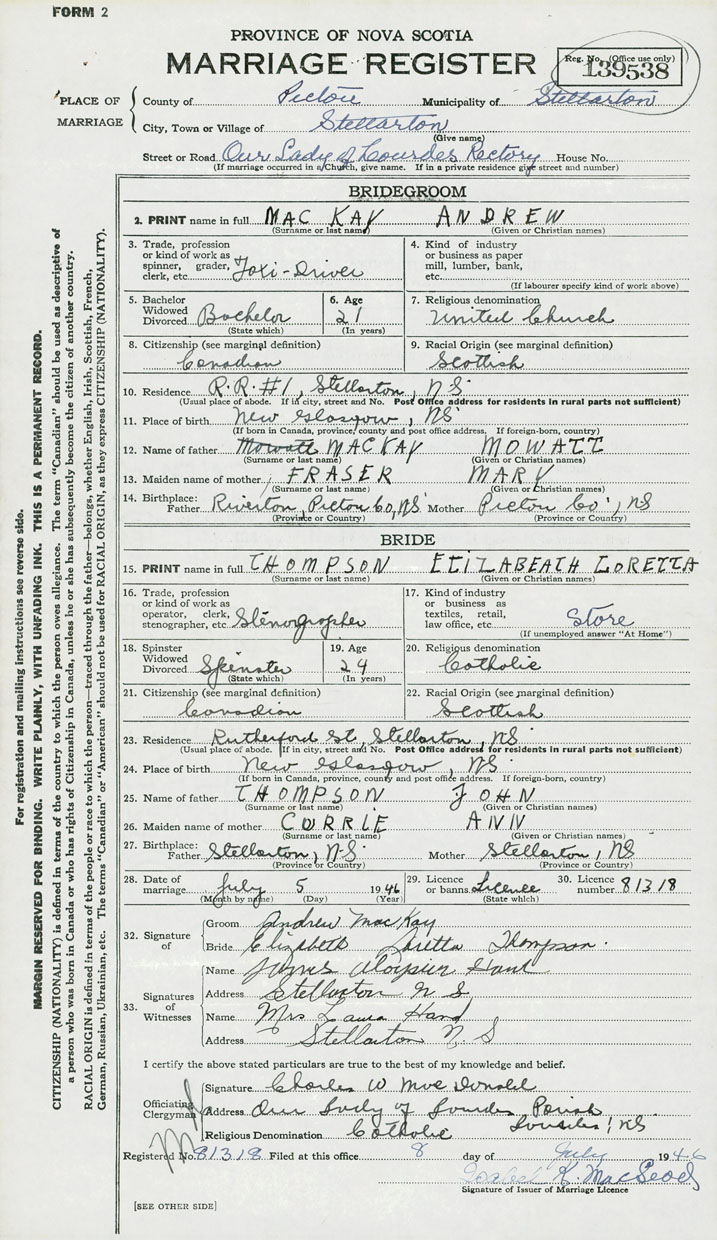 FORM 2
PROVINCE OF NOVA SCOTIA
MARRIAGE REGISTER
Reg. No. (Office use only)
139538
PLACE OF MARRIAGE
County of Pictou Municipality of Stellarton
City, Town or Village of Stellarton
(Give name)
Street or Road Our Lady of Lourdes Rectory House No.
(If marriage occurred in a Church, give name. If in a private residence give street and number)
BRIDEGROOM
2. PRINT name in full MAC KAY ANDREW
(Surname or last name) (Given or Christian names)
3. Trade, profession or kind of work as spinner, grader, clerk, etc. Taxi-Driver
4. Kind of industry or business as paper mill, lumber, bank, etc.
(If labourer specify kind of work above)
5. Bachelor Widowed Divorced Bachelor
(State which)
6. Age 21
(In years)
7. Religious denomination United Church
8. Citizenship (see marginal definition) Canadian
9. Racial Origin (see marginal definition) Scottish
10. Residence R.R. #1, Stellarton, NS
(Usual place of abode. If in city, street and No. Post Office address for residents in rural parts not sufficient)
11. Place of birth New Glasgow, NS
(If born in Canada, province, county and post office address. If foreign-born, country)
12. Name of father Mowatt MACKAY MOWATT
(Surname or last name) (Given or Christian names)
13. Maiden name of mother FRASER MARY
(Surname or last name) (Given or Christian names)
14. Birthplace: Father Riverton, Pictou Co, NS Mother Pictou Co, NS
(Province or Country) (Province or Country)
BRIDE
15. PRINT name in full THOMPSON ELIZABEATH LORETTA
(Surname or last name) (Given or Christian names)
16. Trade, profession or kind of work as operator, clerk, stenographer, etc. Stenographer
17. Kind of industry or business as textiles, retail, law office, etc. Store
(If unemployed answer "At Home")
18. Spinster Widowed Divorced Spinster
(State which)
19. Age 24
(In years)
20. Religious denomination Catholic
21. Citizenship (see marginal definition) Canadian
22. Racial Origin (see marginal definition) Scottish
23. Residence Rutherford St, Stellarton, NS
(Usual place of abode. If in city, street and No. Post Office address for residents in rural parts not sufficient)
24. Place of birth New Glasgow, NS
(If born in Canada, province, county and post office address. If foreign-born, country)
25. Name of father THOMPSON JOHN
(Surname or last name) (Given or Christian names)
26. Maiden name of mother CORRIE ANN
(Surname or last name) (Given or Christian names)
27. Birthplace: Father Stellarton, N.S. Mother Stellarton, NS
(Province or Country) (Province or Country)
28. Date of marriage July 5 1946
(Month by name) (Day) (Year)
29. Licence or banns Licence
(State which)
30. Licence number 81318
32. Signature of
Groom Andrew MacKay
Bride Elizabeth Loretta Thompson.
33. Signatures of Witnesses
Name James Aloysius Hand
Address Stellarton N S
Name Mrs Laura Hand
Address Stellarton N. S
I certify the above stated particulars are true to the best of my knowledge and belief.
Officiating Clergyman
Signature Charles W MacDonald
Address Our Lady of Lourdes Parish
Lourdes, NS
Religious Denomination Catholic
Registered No. 81318 Filed at this office 8 day of July 1946
K. MacLeod
Signature of Issuer of Marriage Licence
[SEE OTHER SIDE]
For registration and mailing instructions see reverse side.
MARGIN RESERVED FOR BINDING. WRITE PLAINLY, WITH UNFADING INK. THIS IS A PERMANENT RECORD.
CITIZENSHIP (NATIONALITY) is defined in terms of the country to which the person owes allegiance. The term "Canadian" should be used as descriptive of
a person who was born in Canada or who has rights of Citizenship in Canada, unless he or she has subsequently become the citizen of another country.
RACIAL ORIGIN is defined in terms of the people or race to which the person—traced through the father—belongs, whether English, Irish, Scottish, French,
German, Russian, Ukrainian, etc. The terms "Canadian" or "American" should not be used for RACIAL ORIGIN, as they express CITIZENSHIP (NATIONALITY).